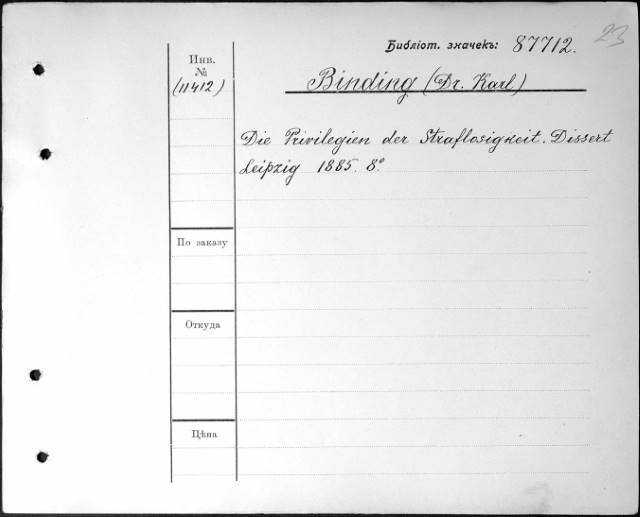 23
Библіот. значекъ: 87712.
Инв.
№
(11412)
Binding (Dr. Karl)
Die Privilegien der Straflosigkeit. Dissert
Leipzig 1885. 8º
По заказу
Откуда
Цѣна